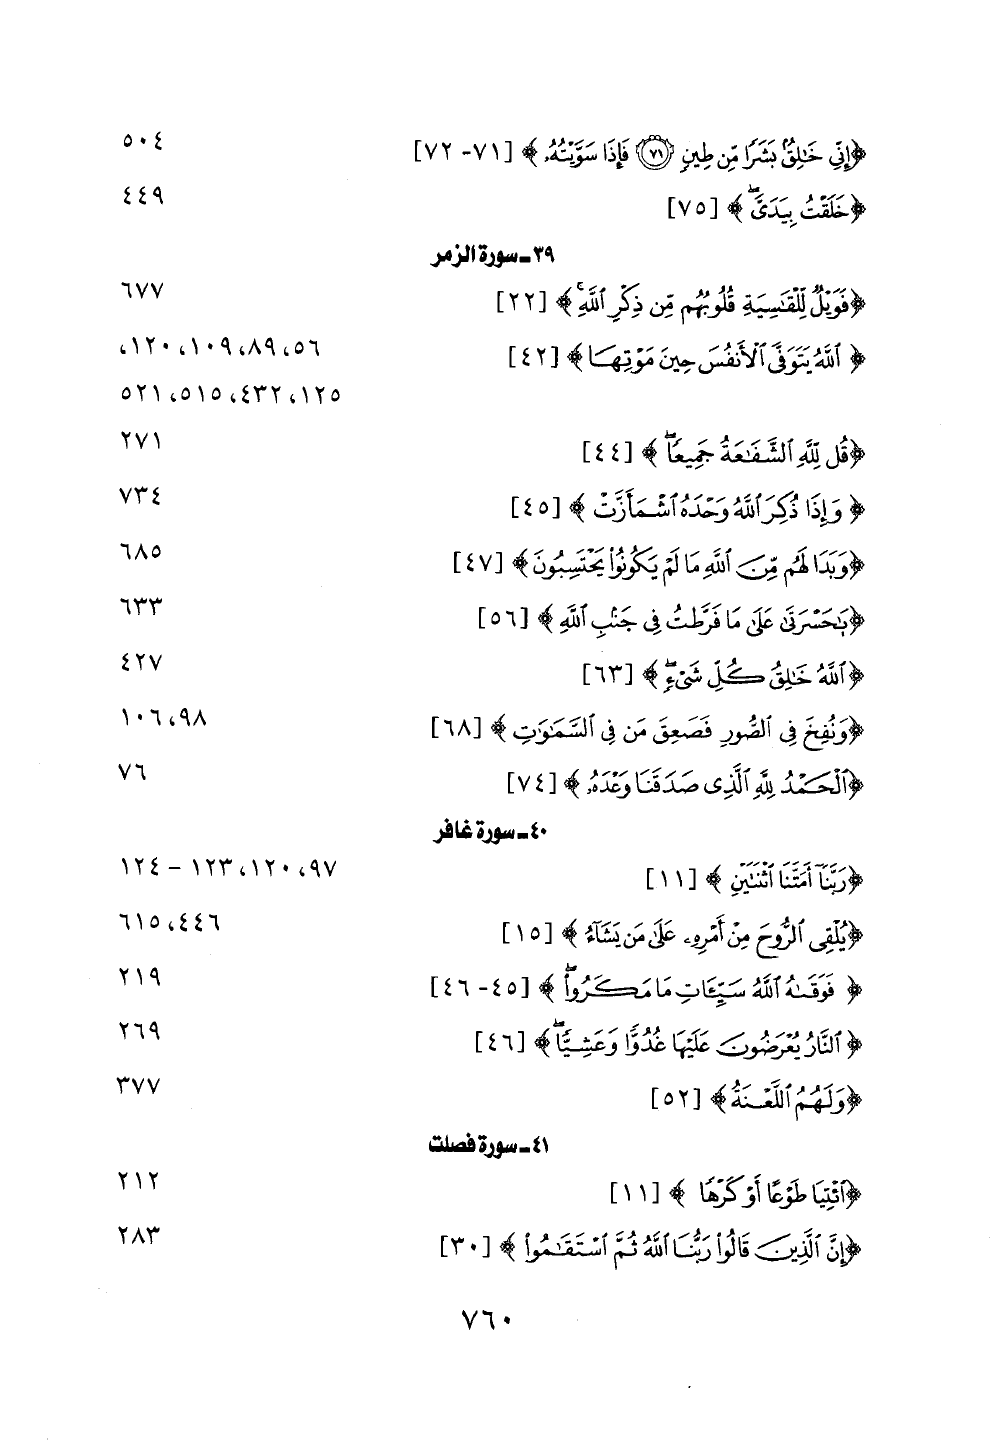 ﴿إِنِّي خَٰلِقٌۢ بَشَرًا مِّن طِينٍ ۝٧١ فَإِذَا سَوَّيْتُهُۥ﴾ [٧١- ٧٢] ٥٠٤
﴿خَلَقْتُ بِيَدَيَّۖ﴾ [٧٥] ٤٤٩
٣٩ـ سورة الزمر
﴿فَوَيْلٌ لِّلْقَٰسِيَةِ قُلُوبُهُم مِّن ذِكْرِ ٱللَّهِۚ﴾ [٢٢] ٦٧٧
﴿ٱللَّهُ يَتَوَفَّى ٱلْأَنفُسَ حِينَ مَوْتِهَا﴾ [٤٢] ٥٦، ٨٩، ١٠٩، ١٢٠،
١٢٥، ٤٣٢، ٥١٥، ٥٢١
﴿قُل لِّلَّهِ ٱلشَّفَٰعَةُ جَمِيعًاۖ﴾ [٤٤] ٢٧١
﴿وَإِذَا ذُكِرَ ٱللَّهُ وَحْدَهُ ٱشْمَأَزَّتْ﴾ [٤٥] ٧٣٤
﴿وَبَدَا لَهُم مِّنَ ٱللَّهِ مَا لَمْ يَكُونُوا۟ يَحْتَسِبُونَ﴾ [٤٧] ٦٨٥
﴿يَٰحَسْرَتَىٰ عَلَىٰ مَا فَرَّطتُ فِى جَنۢبِ ٱللَّهِ﴾ [٥٦] ٦٣٣
﴿ٱللَّهُ خَٰلِقُ كُلِّ شَىْءٍۖ﴾ [٦٣] ٤٢٧
﴿وَنُفِخَ فِى ٱلصُّورِ فَصَعِقَ مَن فِى ٱلسَّمَٰوَٰتِ﴾ [٦٨] ٩٨، ١٠٦
﴿ٱلْحَمْدُ لِلَّهِ ٱلَّذِى صَدَقَنَا وَعْدَهُۥ﴾ [٧٤] ٧٦
٤٠ـ سورة غافر
﴿رَبَّنَآ أَمَتَّنَا ٱثْنَتَيْنِ﴾ [١١] ٩٧، ١٢٠، ١٢٣ – ١٢٤
﴿يُلْقِى ٱلرُّوحَ مِنْ أَمْرِهِۦ عَلَىٰ مَن يَشَآءُ﴾ [١٥] ٤٤٦، ٦١٥
﴿فَوَقَىٰهُ ٱللَّهُ سَيِّـَٔاتِ مَا مَكَرُوا۟ۖ﴾ [٤٥- ٤٦] ٢١٩
﴿ٱلنَّارُ يُعْرَضُونَ عَلَيْهَا غُدُوًّا وَعَشِيًّاۖ﴾ [٤٦] ٢٦٩
﴿وَلَهُمُ ٱللَّعْنَةُ﴾ [٥٢] ٣٧٧
٤١ـ سورة فصلت
﴿ٱئْتِيَا طَوْعًا أَوْ كَرْهًا﴾ [١١] ٢١٢
﴿إِنَّ ٱلَّذِينَ قَالُوا۟ رَبُّنَا ٱللَّهُ ثُمَّ ٱسْتَقَٰمُوا۟﴾ [٣٠] ٢٨٣
٧٦٠